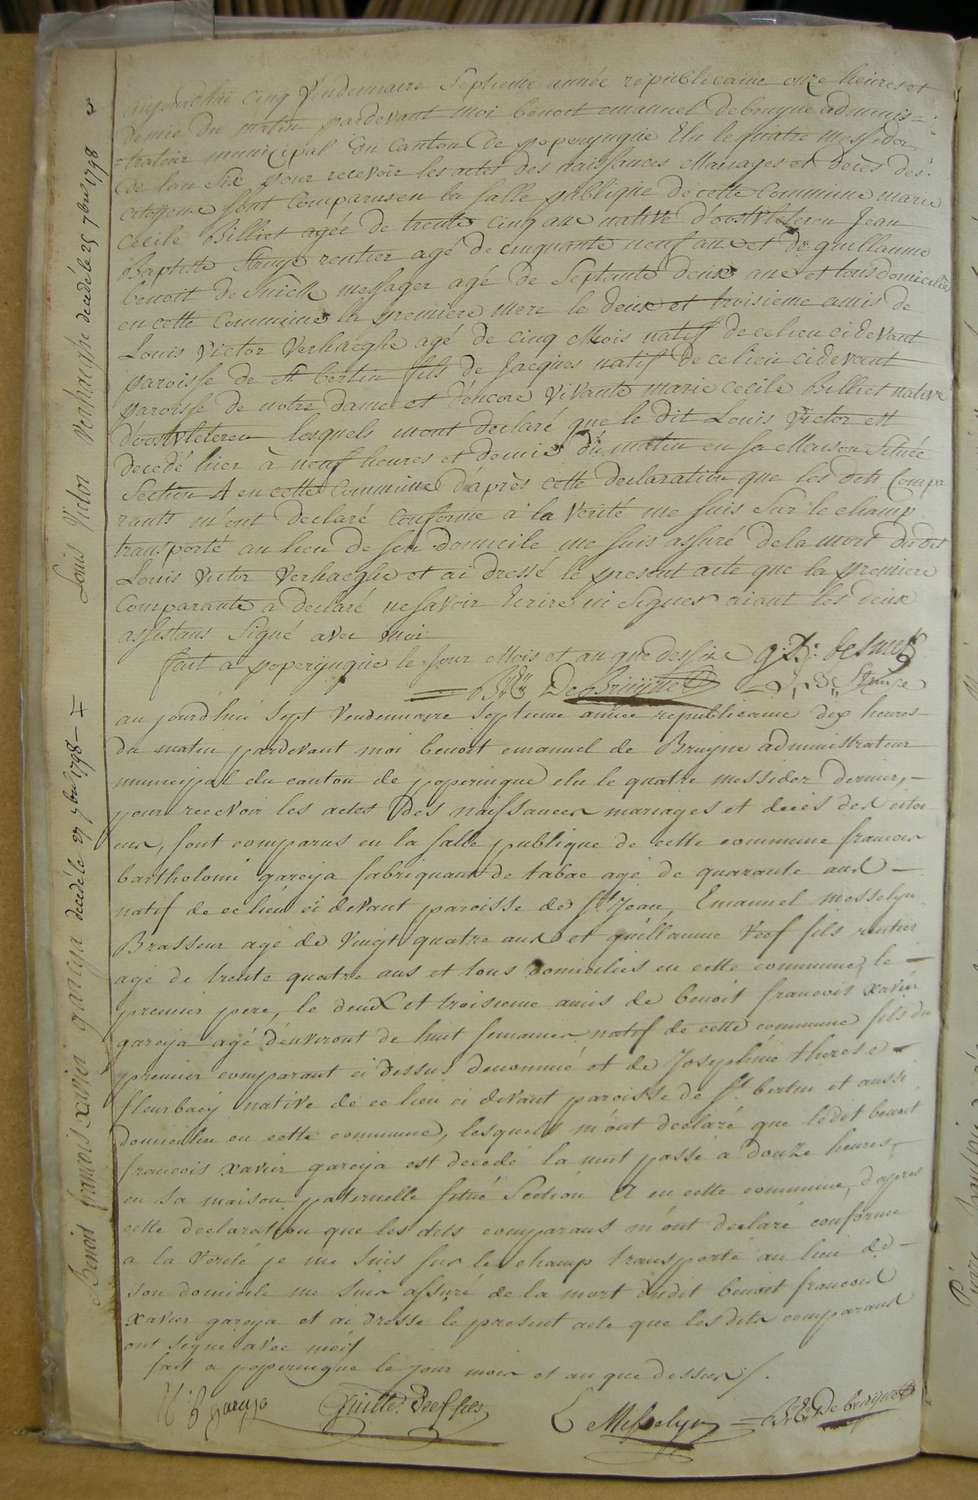 aujourdhui cinq Vendemiaire Septieme année republicaine onze heures et
demie du matin pardevant moi benoit emanuel debruyne adminis=
=trateur municipal du Canton de poperingue Elu le quatre messidor
de l'an Six pour recevoir les actes des naissances Mariages et Décès des
citoyens sont Comparus en la salle publique de cette Commune marie
Cécile Billiet agée de trente cinq ans native d'oostvleteren Jean
Baptiste rentier agé de cinquante neuf ans et de guillaume
benoit messager agé de Septante deux ans et tous domiciliés
en cette Commune la première mere le deux et troisieme amis de
Louis Victor Verhaeghe agé de cinq Mois natif de ce lieu ci devant
paroisse de St bertin fils de Jacques natif de ce lieu cidevant
paroisse de notre dame et d'encore Vivante marie Cecile Billiet native
d'oostvleteren lesquels m'ont declaré que le dit Louis Victor est
decedé hier à neuf heures et demie du matin en sa Maison Située
Section A en cette Commune d'après cette declaration que les dits Compa
rants m'ont declaré Conforme à la Verité me suis sur le champ
transporté au lieu de son domicile me suis assuré de la mort du dit
Louis Victor Verhaeghe et ai dressé le present acte que la premiere
Comparante a declaré ne savoir Ecrire ni Signer aiant les deux
assistans Signé avec moi
fait a poperyngue le jour Mois et an que dessus
DeBruyne
aujourdhui sept Vendemiaire septieme année republicaine dix heures
du matin pardevant moi benoit emanuel de Bruyne administrateur
municipal du canton de poperingue elu le quatre messidor dernier,—
pour recevoir les actes Des naissances mariages et décès des citoi
ens, sont comparus en la salle publique de cette commune francois
bartholomé gareija fabriquant de tabac agé de quarante ans —
natif de ce lieu ci devant paroisse de St Jean, Emanuel messelyn
Brasseur agé de Vingt quatre ans et guillaume fils rentier
agé de trente quatre ans et tous Domiciliés en cette commune, le —
premier pere, le deux et troisieme amis de benoit francois xavier
gareija agé d'environt de huit semaines natif de cette commune fils du
premier comparant ci dessus denommé et de Josephine therese
fleurbaeij native de ce lieu ci devant paroisse de St bertin et aussi
domiciliée en cette commune, lesquels m'ont declaré que ledit benoit
francois xavier gareija est decedé la nuit passé a douze heures,—
en sa maison paternelle situé Section A en cette commune, d'apres
cette declaration que les dits comparans m'ont declaré conforme
a la Verité je me suis sur le champ transporté au lieu de —
son domicile me suis assuré de la mort dudit benoit francois
xavier gareija et ai dressé le present acte que les dits comparans
ont signé avec moi
fait a poperingue le jour mois et an que dessus
gareija
Guille. fils
E Messelyn
Debruyne
Louis Victor Verhaeghe decédé le 25 7bre 1798
Benoit françois xavier gareija decédé le 27 7bre 1798